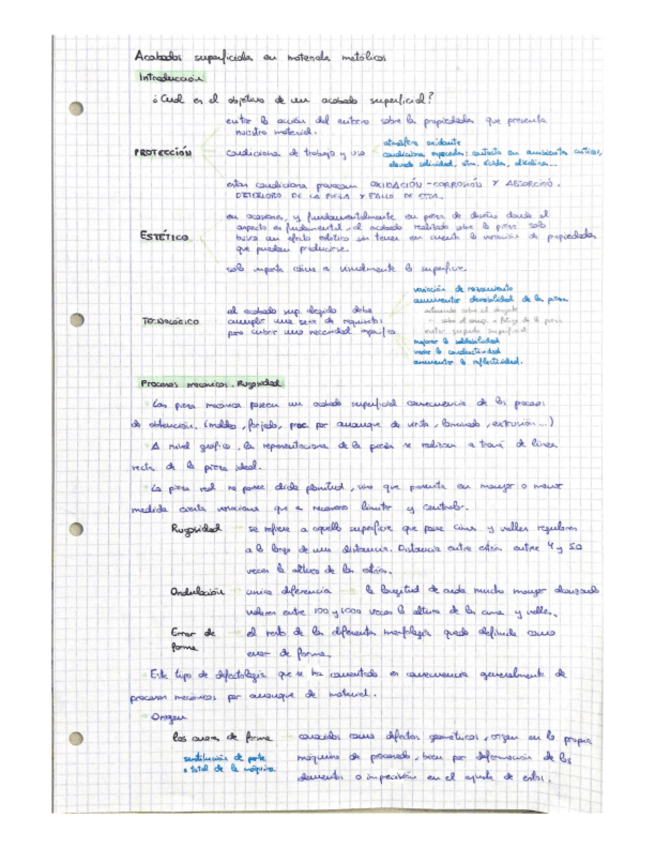 Acabados superficiales en materiales metálicos
Introducción
¿Cuál es el objetivo de un acabado superficial?
evitar la acción del entorno sobre las propiedades que presenta
nuestro material.
PROTECCIÓN
condiciones de trabajo y uso
atmósfera oxidante
condiciones especiales: contacto en ambientes críticos,
elevada salinidad, atm. ácidas, alcalinas...
estas condiciones provocan OXIDACIÓN - CORROSIÓN Y ABSORCIÓN.
DETERIORO DE LA PIEZA Y FALLO DE ESTA.
ESTÉTICO
en ocasiones, y fundamentalmente en piezas de diseño donde el
aspecto es fundamental, el acabado realizado sobre la pieza solo
busca un efecto estético sin tener en cuenta la variación de propiedades
que puedan producirse.
solo importa cómo es visualmente la superficie.
TECNOLÓGICO
el acabado sup. elegido debe
cumplir una serie de requisitos
para cubrir una necesidad específica
variación de rozamiento
aumentar durabilidad de la pieza
actuando sobre el desgaste
evitar superficial
mejorar la soldabilidad
variar la conductividad
aumentar la reflectividad.
Procesos mecánicos. Rugosidad
Las piezas mecánicas poseen un acabado superficial consecuencia de los procesos
de obtención. (moldeo, forjado, proc. por arranque de viruta, laminado, extrusión...)
A nivel gráfico, la representaciones de la piezas se realizan a través de líneas
rectas de la pieza ideal.
La pieza real no posee dicha planitud, sino que presenta en mayor o menor
medida ciertas variaciones que es necesario limitar y controlar.
Rugosidad
se refiere a aquella superficie que posee cimas y valles regulares
a lo largo de una distancia. Distancia entre cimas entre 4 y 50
veces la altura de las cimas.
Ondulación
única diferencia
la longitud de onda mucho mayor alcanzando
valores entre 100 y 1000 veces la altura de las cimas y valles.
Error de
forma
el resto de las diferentes morfologías queda definido como
error de forma.
Este tipo de defectología que se ha comentado es consecuencia generalmente de
procesos mecánicos por arranque de material.
Origen
Los errores de forma
conocidos como defectos geométricos, origen en la propia
sustitución de parte
o total de la máquina
máquina de procesado, bien por deformación de los
elementos o imprecisión en el ajuste de estos.